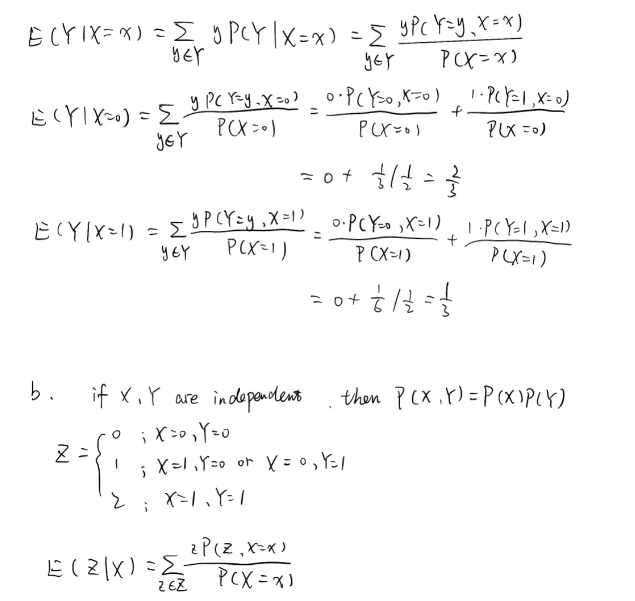 E(Y|X=x) = Σ_{y∈Y} y P(Y|X=x) = Σ_{y∈Y} yP(Y=y, X=x) / P(X=x)
E(Y|X=0) = Σ_{y∈Y} y P(Y=y, X=0) / P(X=0) = 0·P(Y=0, X=0) / P(X=0) + 1·P(Y=1, X=0) / P(X=0)
= 0 + 1/3 / 1/2 = 2/3
E(Y|X=1) = Σ_{y∈Y} yP(Y=y, X=1) / P(X=1) = 0·P(Y=0, X=1) / P(X=1) + 1·P(Y=1, X=1) / P(X=1)
= 0 + 1/6 / 1/2 = 1/3
b. if X, Y are independent, then P(X,Y) = P(X)P(Y)
Z = { 0 ; X=0, Y=0
1 ; X=1, Y=0 or X=0, Y=1
2 ; X=1, Y=1
E(Z|X) = Σ_{z∈Z} zP(Z, X=x) / P(X=x)